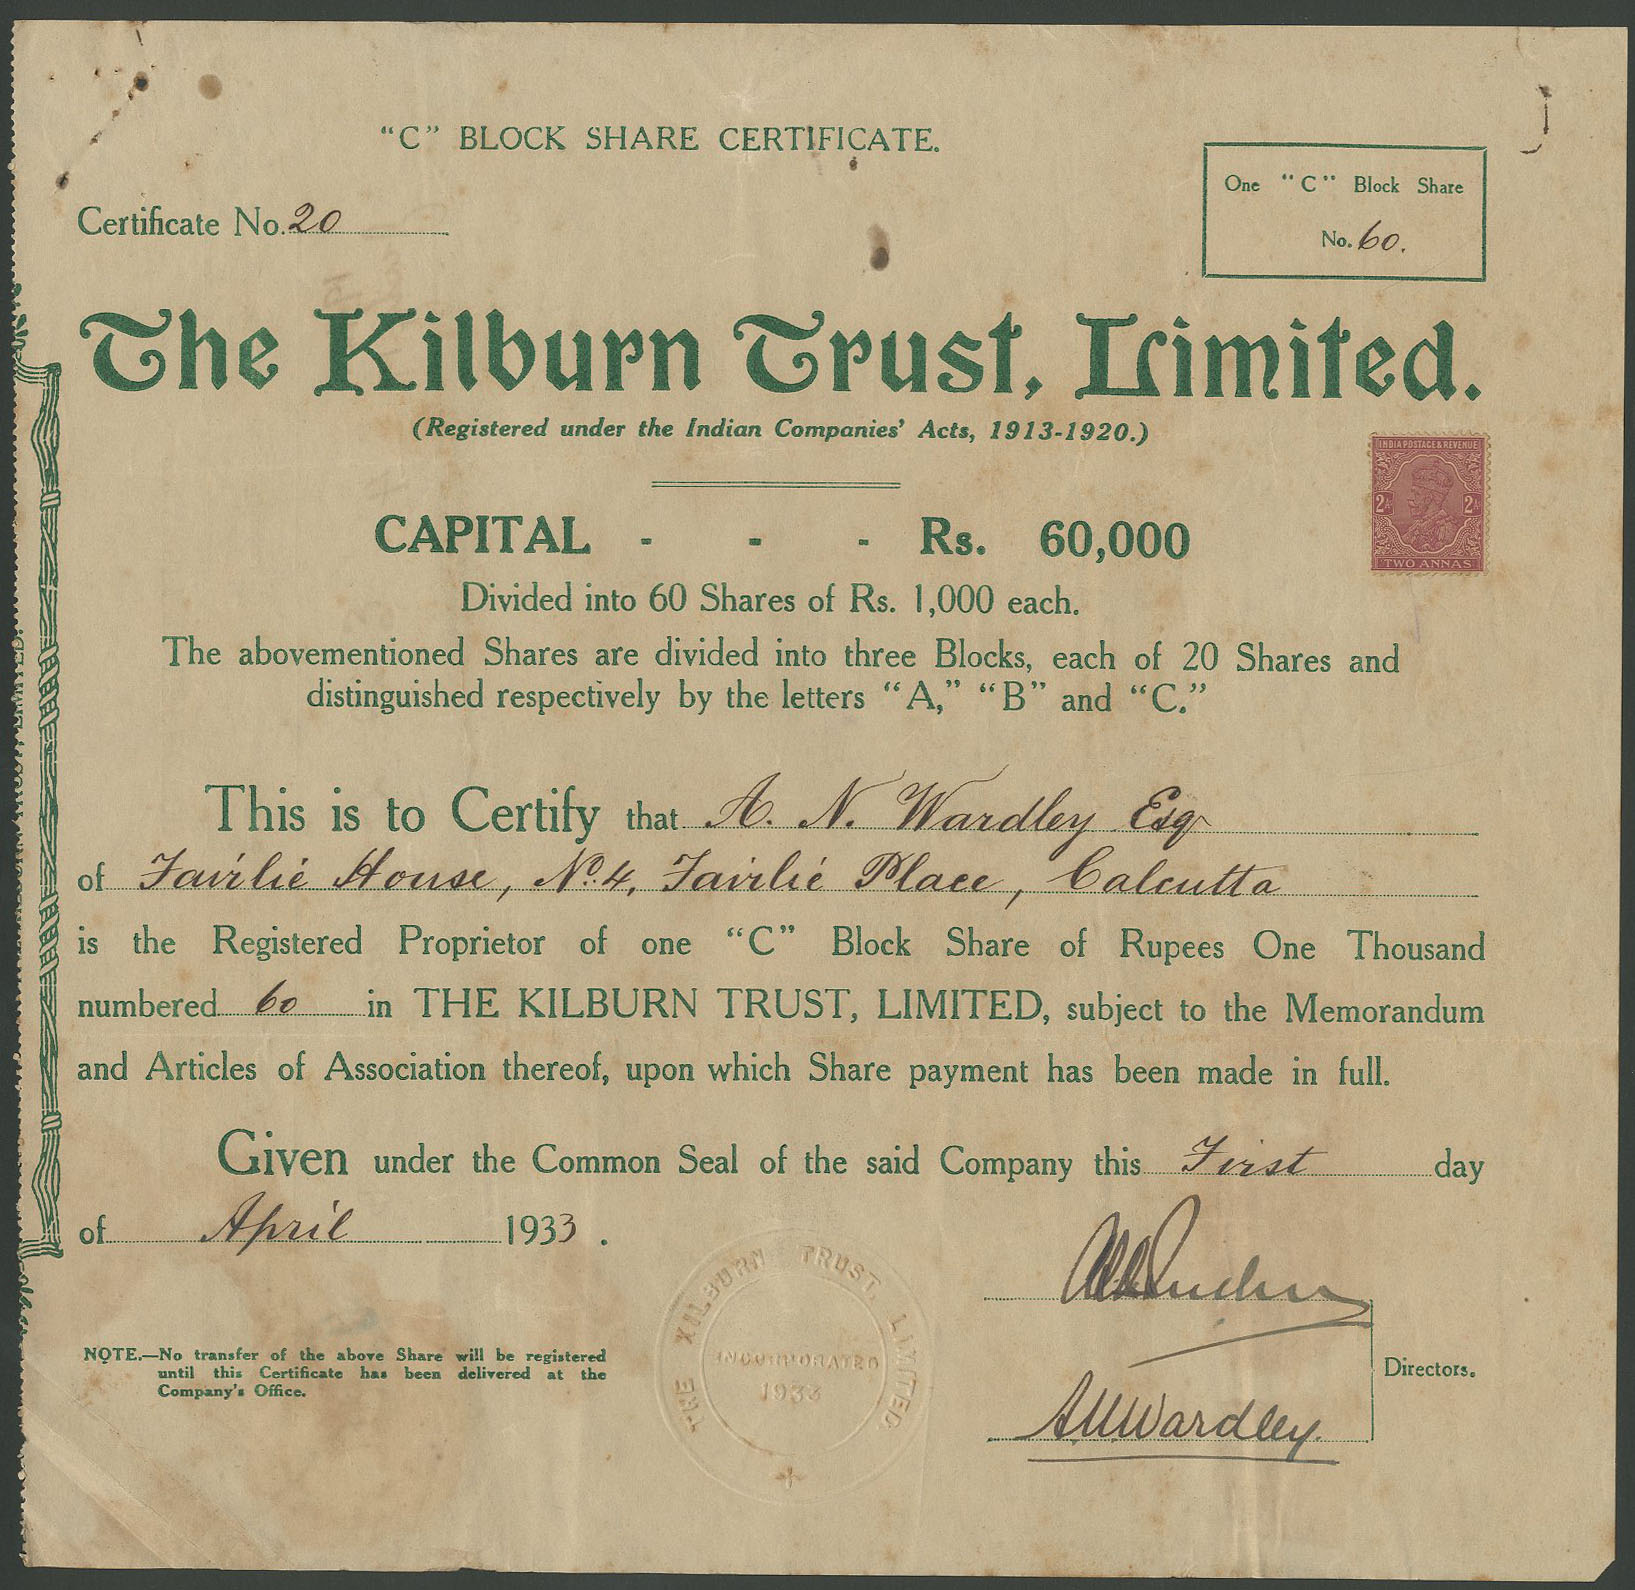 "C" BLOCK SHARE CERTIFICATE.
Certificate No. 20
One "C" Block Share
No. 60.
The Kilburn Trust, Limited.
(Registered under the Indian Companies' Acts, 1913-1920.)
INDIA POSTAGE & REVENUE
2A 2A
TWO ANNAS
CAPITAL - - - Rs. 60,000
Divided into 60 Shares of Rs. 1,000 each.
The abovementioned Shares are divided into three Blocks, each of 20 Shares and
distinguished respectively by the letters "A," "B" and "C."
This is to Certify that A. N. Wardley Esqr
of Fairlie House, No. 4, Fairlie Place, Calcutta
is the Registered Proprietor of one "C" Block Share of Rupees One Thousand
numbered 60 in THE KILBURN TRUST, LIMITED, subject to the Memorandum
and Articles of Association thereof, upon which Share payment has been made in full.
Given under the Common Seal of the said Company this First day
of April 1933.
THE KILBURN TRUST, LIMITED
INCORPORATED
1933
NOTE.—No transfer of the above Share will be registered
until this Certificate has been delivered at the
Company's Office.
Directors.
A.N.Wardley.